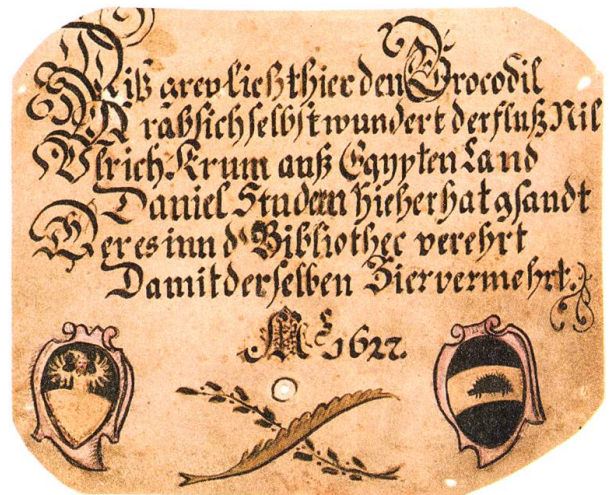 Diß grevlich thier den Crocodil
Darab sich selbst wundert der fluß Nil
Vlrich Krum auß Egypten Land
Daniel Studern hieher hat gsandt
Der es inn d' Bibliothec verehrt
Damit derselben Zier vermehrt.
1627.